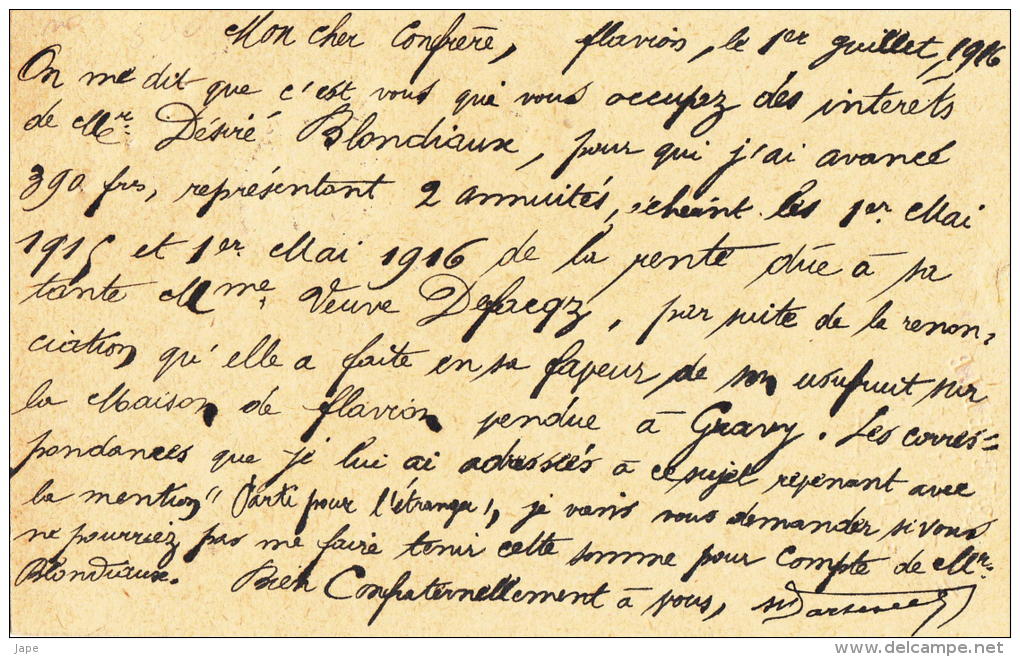 Mon cher Confrère, flavion, le 1er juillet, 1916
On me dit que c'est vous qui vous occupez des interêts
de Mr. Désiré Blondiaux, pour qui j'ai avancé
390 frs, représentant 2 annuités, échéint les 1er Mai
1915 et 1er Mai 1916 de la rente dûe à sa
tante Mme. Veuve Defacqz, par suite de la renon-
ciation qu'elle a faite en sa faveur de son usufruit sur
la Maison de flavion vendue à Gravy. Les corres-
pondances que je lui ai adressées à ce sujet revenant avec
la mention "Parti pour l'étranger", je viens vous demander si vous
ne pourriez pas me faire tenir cette somme pour compte de Mr.
Blondiaux. Bien Confraternellement à vous,
Jape
http://www.delcampe.net